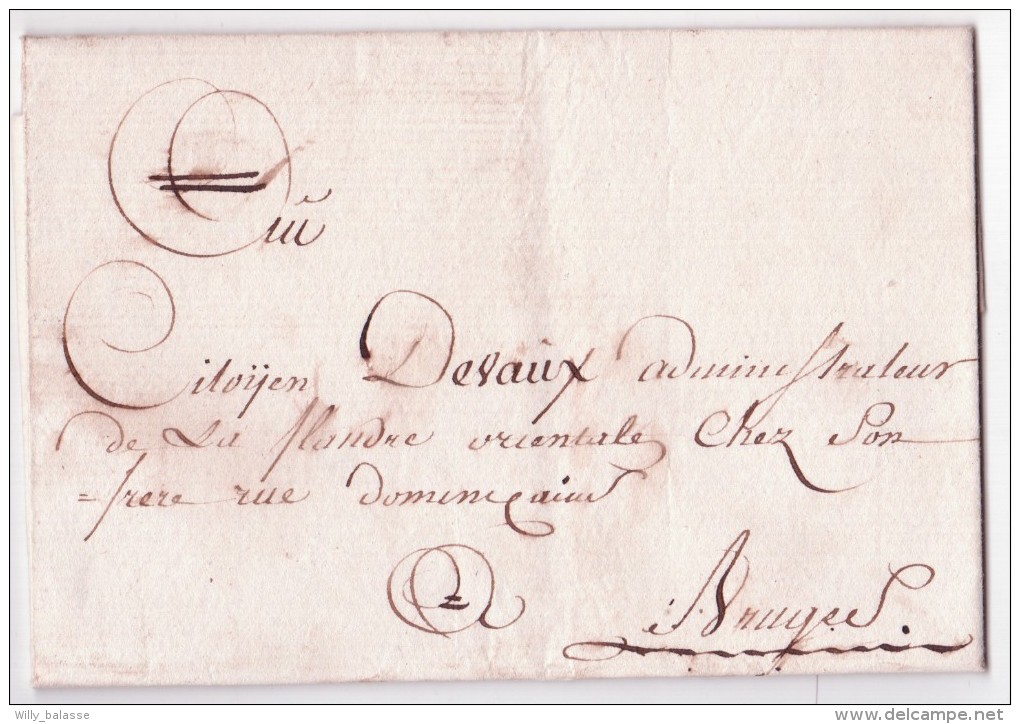 Au
Citoijen Devaux administrateur
de La flandre orientale Chez Son
=frere rue dominicains
A Bruges.
Willy_balasse
delcampe.net